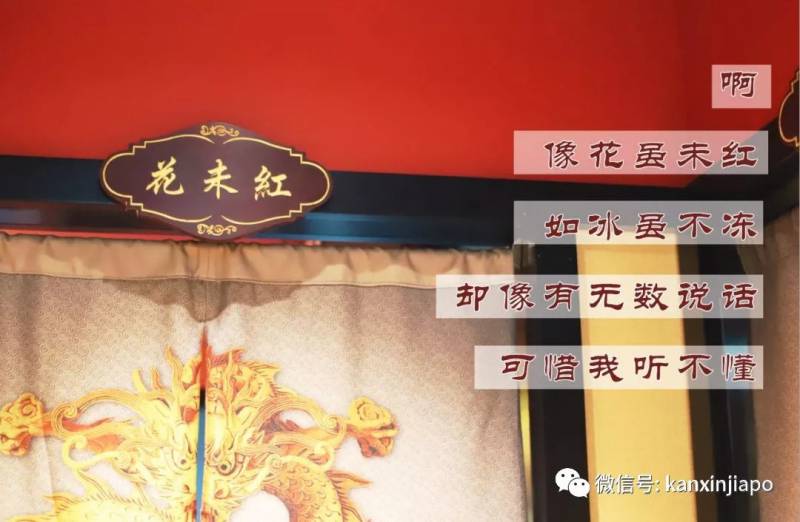 花未紅
啊
像花虽未红
如冰虽不冻
却像有无数说话
可惜我听不懂
微信号: kanxinjiapo